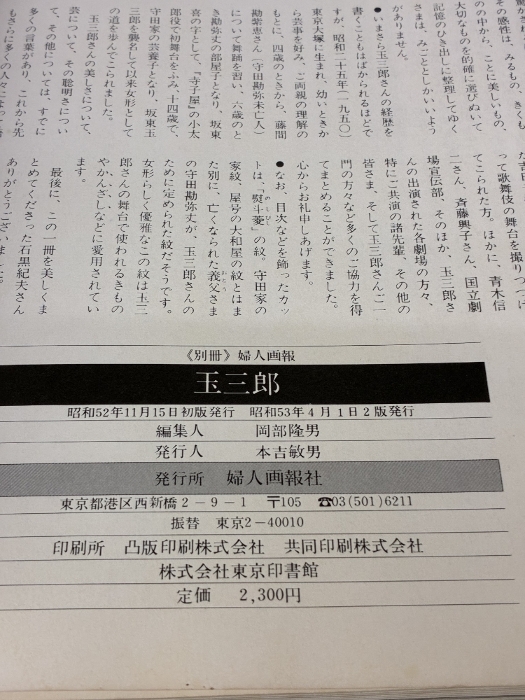 その感性は、みるもの、きくも
のの中から、ことに美しいもの
大切なものを的確に選びぬいて
記憶のひき出しに整理してゆく
さまは、みごととしかいいよう
がありません。
●いまさら玉三郎さんの経歴を
書くこともはばかられるほどで
すが、昭和二十五年（一九五〇）
東京大塚に生まれ、幼いときか
ら芸事を好み、ご両親の理解の
もとに、四歳のときから、藤間
勘紫恵さん（守田勘弥未亡人）
について舞踊を習い、六歳のと
き勘弥丈の部屋子となり、坂東
喜の字として、『寺子屋』の小太
郎役で初舞台をふみ、十四歳で、
守田家の芸養子となり、坂東玉
三郎を襲名して以来女形として
の道を歩んでこられました。
玉三郎さんの美しさについて、
芸について、その聡明さについ
て、その他については、すでに
多くの言葉があり、これから先
って歌舞伎の舞台を撮りつづけ
てこられた方。ほかに、青木信
二さん、斉藤興子さん、国立劇
場宣伝部、そのほか、玉三郎さ
んの出演された各劇場の方々、
特にご共演の諸先輩、その他の
皆さま、そして玉三郎さんご一
門の方々など多くのご協力を得
てまとめることができました。
心からお礼申しあげます。
●なお、目次などを飾ったカッ
トは、「熨斗菱」の紋、守田家の
家紋、屋号の大和屋の紋とはま
た別に、亡くなられた義父さま
の守田勘弥丈が、玉三郎さんの
ために定められた紋だそうです。
女形らしく優雅なこの紋は玉三
郎さんの舞台で使われるきもの
やかんざしなどに愛用されてい
ます。
最後に、この一冊を美しくま
とめてくださった石黒紀夫さん
ありがとうございました。
《別冊》婦人画報
玉三郎
昭和52年11月15日初版発行 昭和53年4月1日2版発行
編集人 岡部隆男
発行人 本吉敏男
発行所 婦人画報社
東京都港区西新橋2－9－1 〒105 ☎03(501)6211
振替 東京2－40010
印刷所 凸版印刷株式会社 共同印刷株式会社
株式会社東京印書館
定価 2,300円